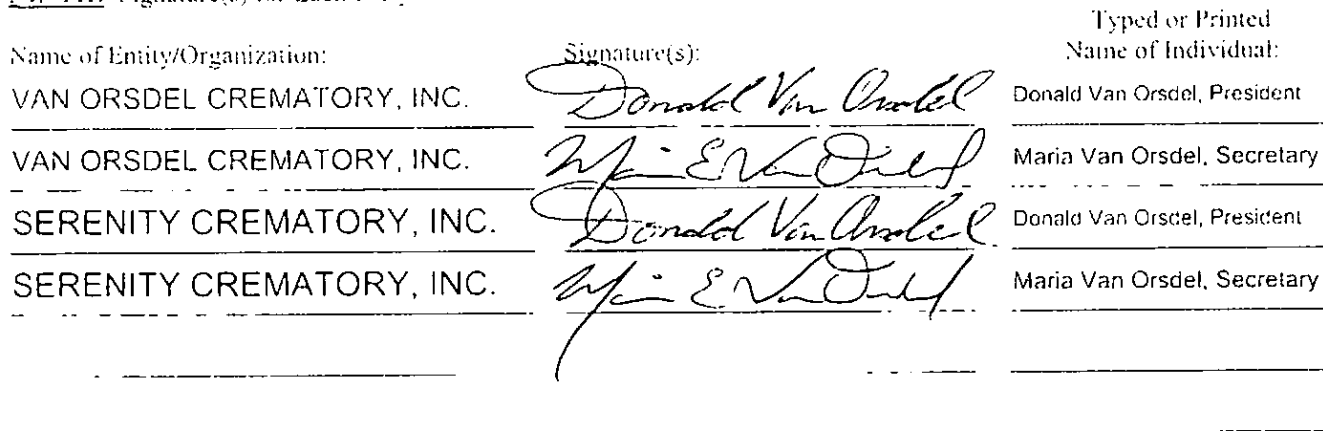 Signature(s)
Typed or Printed
Name of Entity/Organization: Signature(s): Name of Individual:
VAN ORSDEL CREMATORY, INC. Donald Van Orsdel Donald Van Orsdel, President
VAN ORSDEL CREMATORY, INC. Maria E Van Orsdel Maria Van Orsdel, Secretary
SERENITY CREMATORY, INC. Donald Van Orsdel Donald Van Orsdel, President
SERENITY CREMATORY, INC. Maria E Van Orsdel Maria Van Orsdel, Secretary